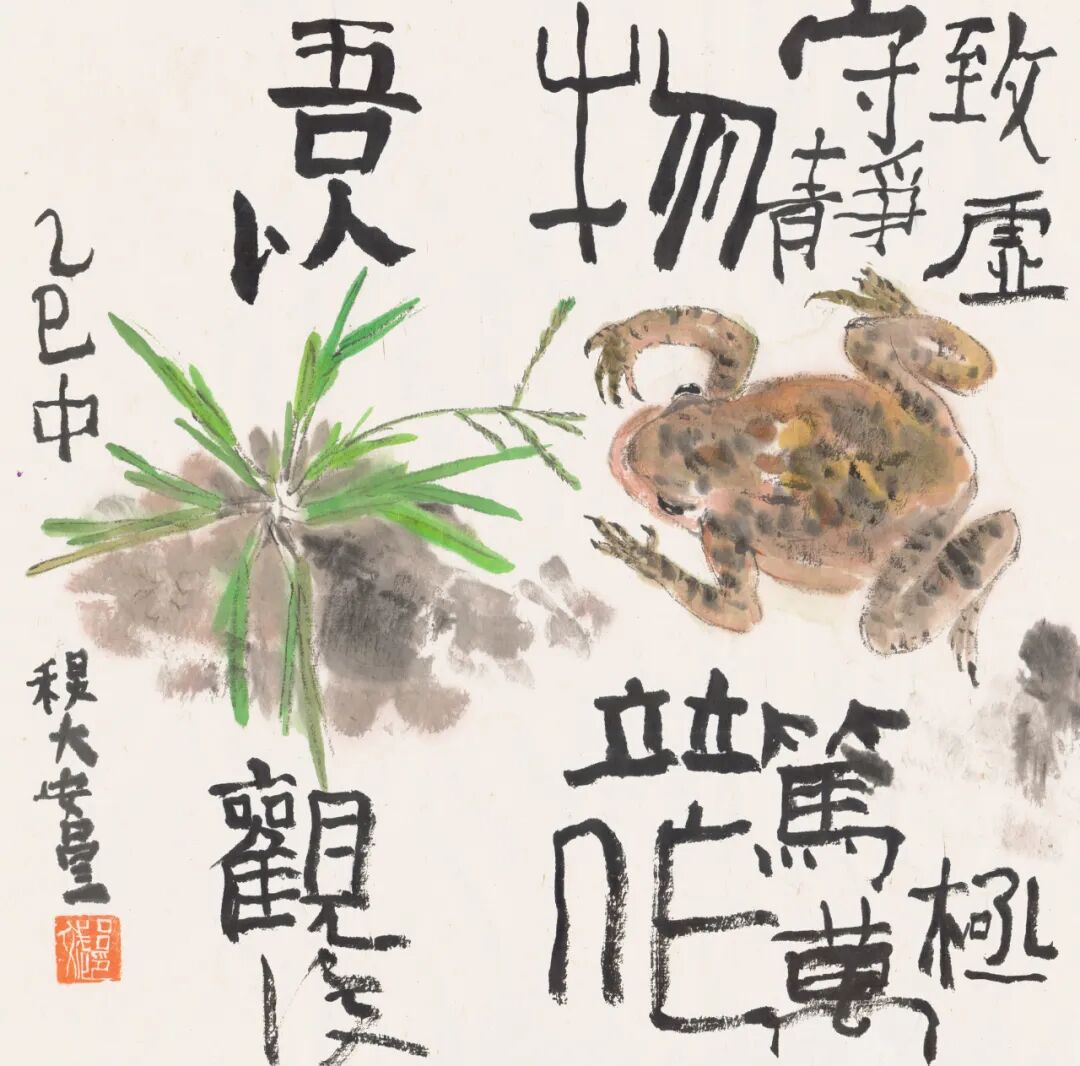 致虛極
守靜篤萬
物竝作
吾以觀復
乙巳中